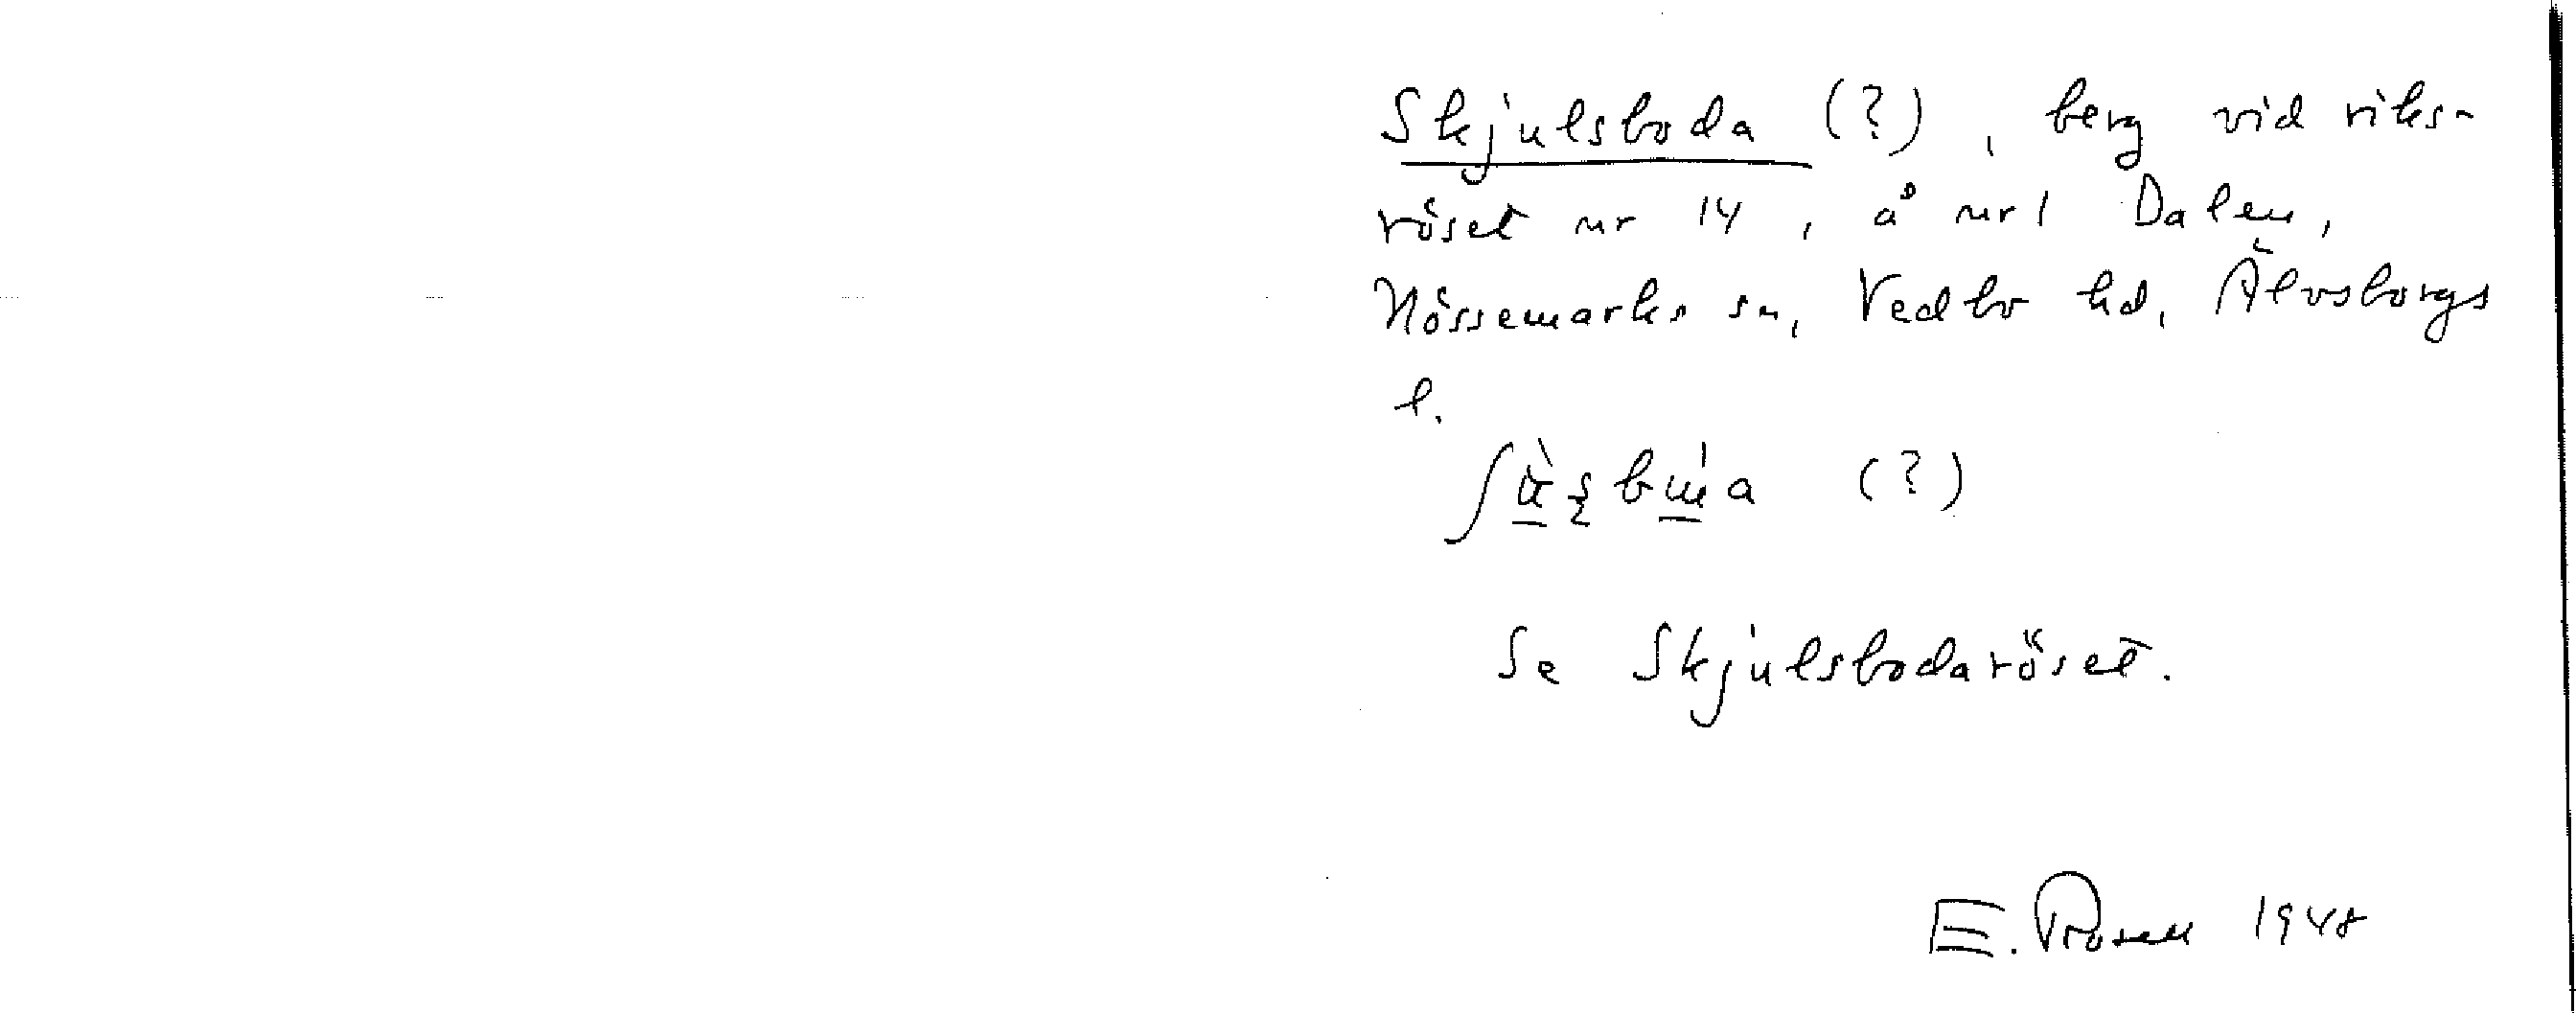 Skjulsboda (?), berg vid riks-
röset nr 14, å nr 1 Dalen,
Nössemarks sn, Vedbo hd, Älvsborgs
l.
(?)
Se Skjulsbodaröset.
E. Rosell 1948